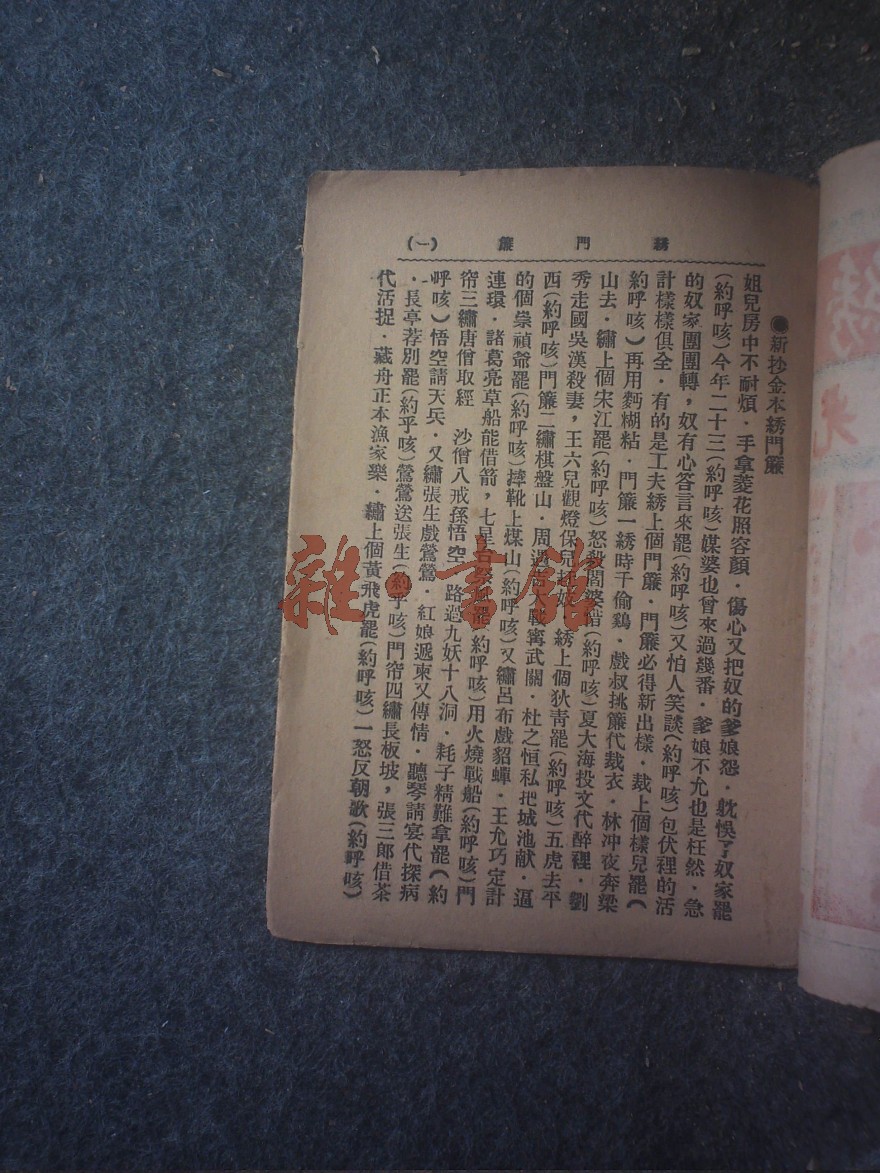 綉門簾 (一)
●新抄金本綉門簾
姐兒房中不耐煩．手拿菱花照容顏．傷心又把奴的爹娘怨．躭悞了奴家罷
(約呼咳)今年二十三(約呼咳)媒婆也曾來過幾番．爹娘不允也是枉然．急
的奴家團團轉，奴有心答言來罷(約呼咳)又怕人笑談(約呼咳)包伏裡的活
計樣樣俱全．有的是工夫綉上個門簾．門簾必得新出樣．裁上個樣兒罷(
約呼咳)再用麪糊粘．門簾一綉時干偷鷄．戲叔挑簾代裁衣．林冲夜奔梁
山去．繡上個宋江罷(約呼咳)怒殺閻婆惜(約呼咳)夏大海投文代醉裡．劉
秀走國吳漢殺妻，王六兒觀燈保兒　　．綉上個狄青罷(約呼咳)五虎去平
西(約呼咳)門簾二繡棋盤山．周遇　　戰寗武關．杜之恒私把城池献．逼
的個崇禎爺罷(約呼咳)摔靴上煤山(約呼咳)又繡呂布戲貂蟬．王允巧定計
連環．諸葛亮草船能借箭，七星台祭風罷(約呼咳)用火燒戰船(約呼咳)門
帘三繡唐僧取經　沙僧八戒孫悟空．路過九妖十八洞．耗子精難拿罷(約
呼咳)悟空請天兵．又繡張生戲鶯鶯．紅娘遞柬又傳情．聽琴請宴代探病
．長亭荐別罷(約乎咳)鶯鶯送張生(約乎咳)門帘四繡長板坡，張三郎借茶
代活捉．藏舟正本漁家樂．繡上個黃飛虎罷(約呼咳)一怒反朝歌(約呼咳)
雜·書館